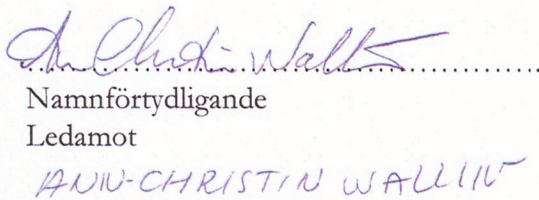 Ann Christin Wallin
Namnförtydligande
Ledamot
ANN-CHRISTIN WALLIN